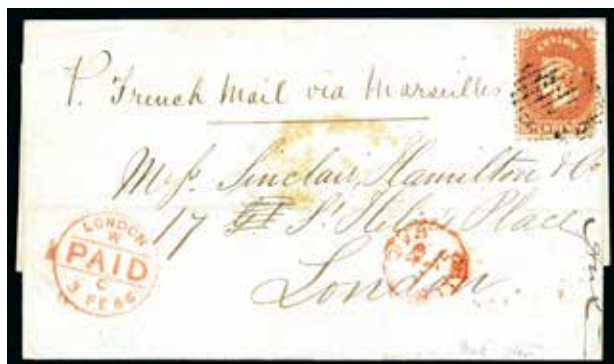 CEYLON
P. French Mail via Marseilles
Messrs. Sinclair, Hamilton & Co
17 St Helen's Place
London
LONDON
W
PAID
C
3 FE 66